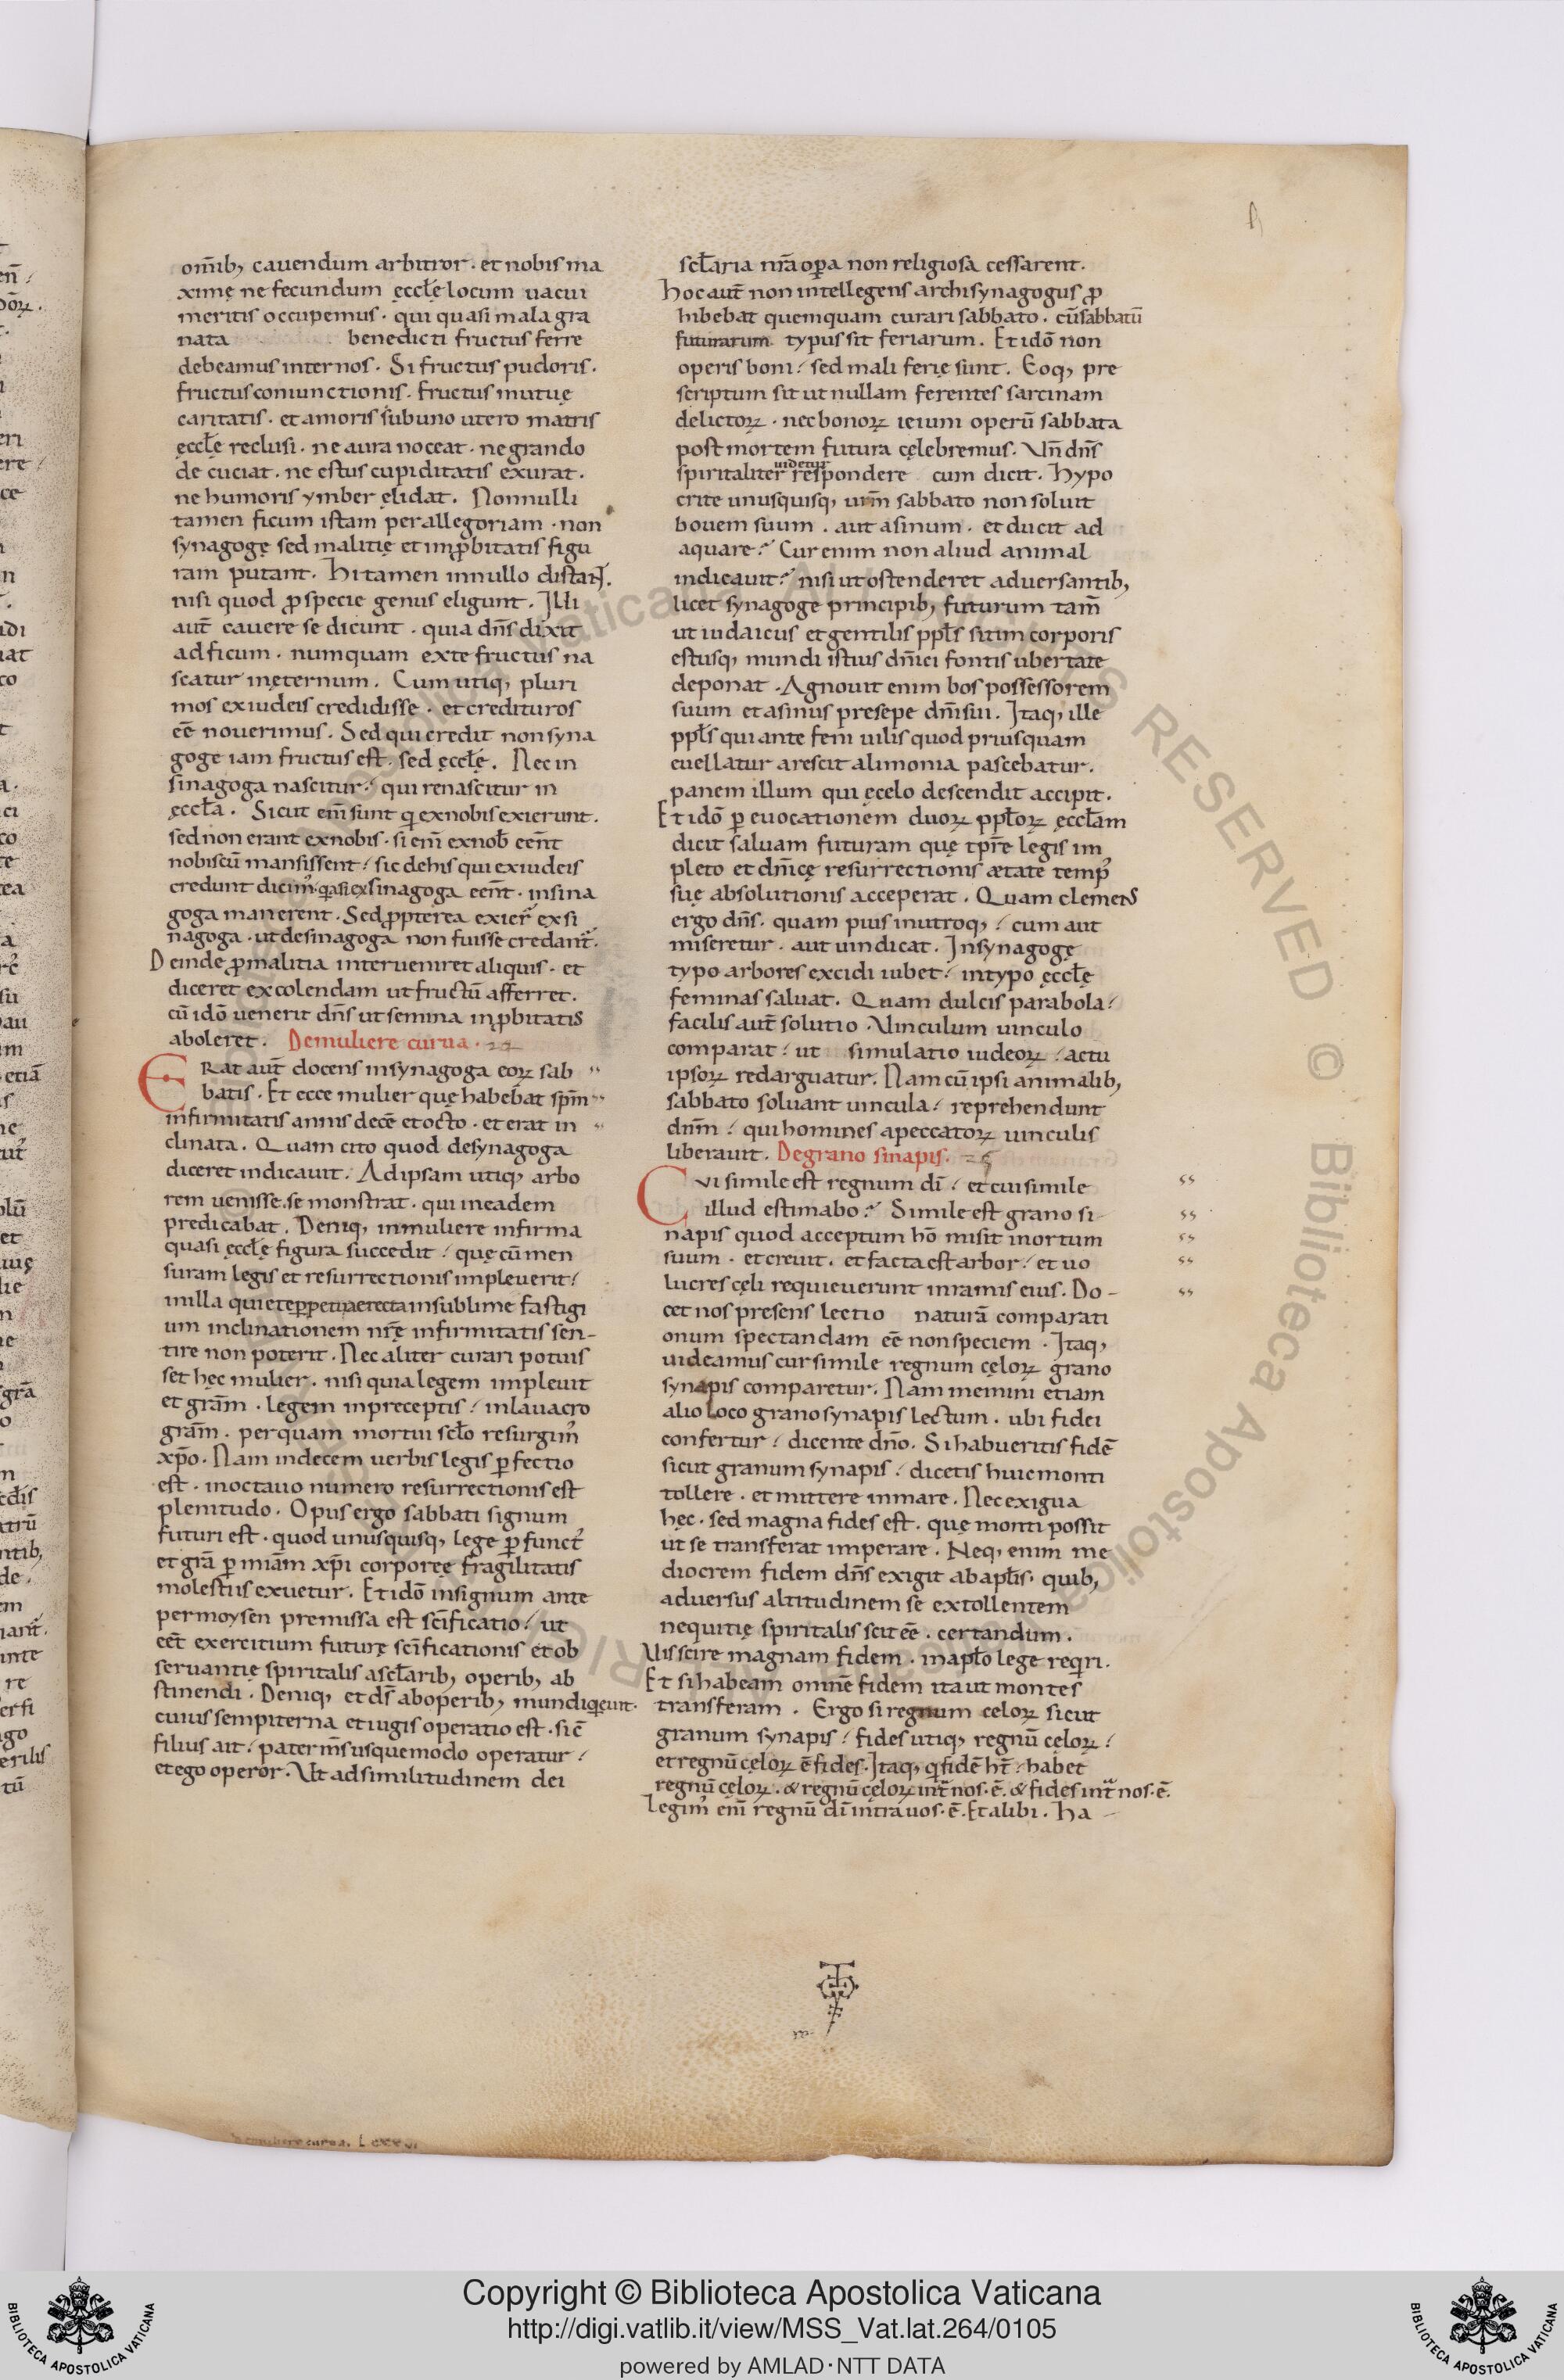 om̄ib; cauendum arbitror · et nobis ma
ximę ne fecundum ęccłę locum uacui
meritis occupemus · qui quasi mala gra
nata benedicti fructus ferre
debeamus inter nos · Si fructus pudoris ·
fructus coniunctionis · fructus mutuę
caritatis · et amoris sub uno utero matris
ęccłę reclusi · ne aura noceat · ne grando
decuciat · ne estus cupiditatis exurat ·
ne humoris ymber ęlidat . Nonnulli
tamen ficum istam per allegoriam · non
synagogę sed malitię et inꝓbitatis figu
ram putant . Hi tamen in nullo distant̄ .
nisi quod ꝓ specie genus eligunt . Illi
aut̄ cauere se dicunt · quia dn̄s dixit
ad ficum · numquam ex te fructus na
scatur in ęternum . Cum utiq; pluri
mos ex iudeis credidisse · et credituros
ēē nouerimus . Sed qui credit non syna
goge iam fructus est · sed ęccłę . Nec in
sinagoga nascitur · qui renascitur in
ęccła . Sicut em̄ sunt q̄ ex nobis exierunt .
sed non erant ex nobis · si em̄ ex nob̄ eent̄
nobiscū mansissent / sic de his qui ex iudeis
credunt dicim᾽ · q̄asi ex sinagoga eent̄ · in sina
goga manerent . Sed ꝓpterea exier̄ ex si
nagoga · ut de sinagoga non fuisse credant̄ .
Deinde ꝓ malitia interueniret aliquis · et
diceret excolendam ut fructū afferret .
cū idō uenerit dn̄s ut semina inꝓbitatis
aboleret . De muliere curua ·
ERat aut̄ docens in synagoga eoꝝ sab
batis · Et ecce mulier quę habebat spm̄
infirmitatis annis decē et octo · et erat in
clinata . Quam cito quod de synagoga
diceret indicauit . Ad ipsam utiq; arbo
rem uenisse se monstrat · qui in eadem
predicabat . Deniq; in muliere infirma
quasi ęccłę figura succedit / quę cū men
suram legis et resurrectionis impleuerit /
in illa quiete ꝑpetua erecta in sublime fastigi
um inclinationem nr̄ę infirmitatis sen-
tire non poterit . Nec aliter curari potuis
set hęc mulier · nisi quia legem impleuit
et grām · legem in preceptis / in lauacro
grām · per quam mortui scło resurgim᾽
xp̄o . Nam in decem uerbis legis ꝑfectio
est · in octauo numero resurrectionis est
plenitudo . Opus ergo sabbati signum
futuri est · quod unusquisq; lege ꝑfunct᾽
et grā ꝑ miām xp̄i corporeę fragilitatis
molestus exuetur . Et idō in signum ante
per moysen premissa est scīficatio / ut
eet̄ exercitium futurę scīficationis et ob
seruantię spiritalis a scłarib; operib; ab
stinendi . Deniq; et ds̄ ab operib; mundi q̄euit ·
cuius sempiterna et iugis operatio est · sic̄
filius ait / pater m̄s usque modo operatur /
et ego operor . Ut ad similitudinem dei
scłaria nr̄a oꝑa non religiosa cessarent .
Hoc aut̄ non intellegens archisynagogus ꝓ
hibebat quemquam curari sabbato · cū sabbatū
futurarum typus sit feriarum . Et idō non
operis boni / sed mali ferię sunt . Eoq; pre
scriptum sit ut nullam ferentes sarcinam
delictoꝝ · nec bonoꝝ ieium operū sabbata
post mortem futura cęlebremus . Un̄ dn̄s
uidetur
spiritaliter respondere cum dicit . Hypo
crite unusquisq; urm̄ sabbato non soluit
bouem suum . aut asinum · et ducit ad
aquare ? Cur enim non aliud animal
indicauit ? nisi ut ostenderet aduersantib;
licet synagoge principib; futurum tam̄
ut iudaicus et gentilis ppłs sitim corporis
estusq; mundi istius dn̄ici fontis ubertate
deponat . Agnouit enim bos possessorem
suum et asinus presepe dn̄i sui . Itaq; ille
ppłs qui ante feni uilis quod priusquam
euellatur arescit alimonia pascebatur .
panem illum qui ę celo descendit accipit .
Et idō ꝑ euocationem duoꝝ ppłoꝝ ęccłam
dicit saluam futuram quę tpr̄e legis im
pleto et dn̄icę resurrectionis ætate temp᾽
suę absolutionis acceperat . Quam clemens
ergo dn̄s · quam pius in utroq; / cum aut
miseretur · aut uindicat . In synagogę
typo arbores excidi iubet / in typo ęccłę
feminas saluat . Quam dulcis parabola /
facilis aut̄ solutio . Uinculum uinculo
comparat / ut simulatio iudeoꝝ / actu
ipsoꝝ redarguatur . Nam cū ipsi animalib;
sabbato soluant uincula / reprehendunt
dnm̄ / qui homines a peccatoꝝ uinculis
liberauit . De grano sinapis .
CVi simile est regnum dī / et cui simile
illud estimabo ? Simile est grano si-
napis quod acceptum hō misit in ortum
suum · et creuit . et facta est arbor / et uo
lucres cęli requieuerunt in ramis eius . Do-
cet nos presens lectio naturā comparati
onum spectandam ēē non speciem . Itaq;
uideamus cur simile regnum cęloꝝ grano
synapis comparetur . Nam memini etiam
alio loco grano synapis lectum . ubi fidei
confertur / dicente dn̄o . Si habueritis fidē
sicut granum synapis / dicetis huic monti
tollere . et mittere in mare . Nec exigua
hęc . sed magna fides est . quę monti possit
ut se transferat imperare . Neq; enim me
diocrem fidem dn̄s exigit ab apłis . quib;
aduersus altitudinem se extollentem
nequitię spiritalis scit ēē . certandum .
Uis scire magnam fidem . in apło lege req̄ri .
Et si habeam omnē fidem ita ut montes
transferam . Ergo si regnum celoꝝ sicut
granum synapis / fides utiq; regnū cęloꝝ /
et regnū cęloꝝ ē fides . Itaq; q̄ fidē ht̄ / habet
regnū cęloꝝ . & regnū cęloꝝ int̄ nos · ē . & fides int̄ nos · ē .
Legim᾽ em̄ regnū dī intra uos · ē . Et alibi . Ha-
Copyright © Biblioteca Apostolica Vaticana
http://digi.vatlib.it/view/MSS_Vat.lat.264/0105
powered by AMLAD·NTT DATA
BIBLIOTECA APOSTOLICA VATICANA
BIBLIOTECA APOSTOLICA VATICANA